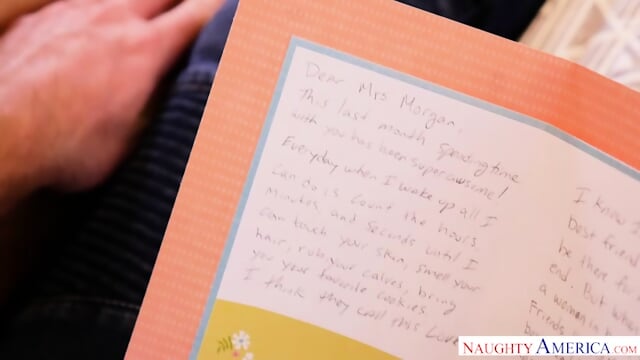 Dear Mrs Morgan,
This last month spending time
with you has been super awesome!
Everyday when I wake up all I
can do is count the hours
minutes and seconds until I
can touch your skin, smell your
hair, rub your calves, bring
you your favorite cookies.
I think they call this Love
I know I
best friend
be there for
end. But wh
a woman in
Friends
NAUGHTY AMERICA.COM